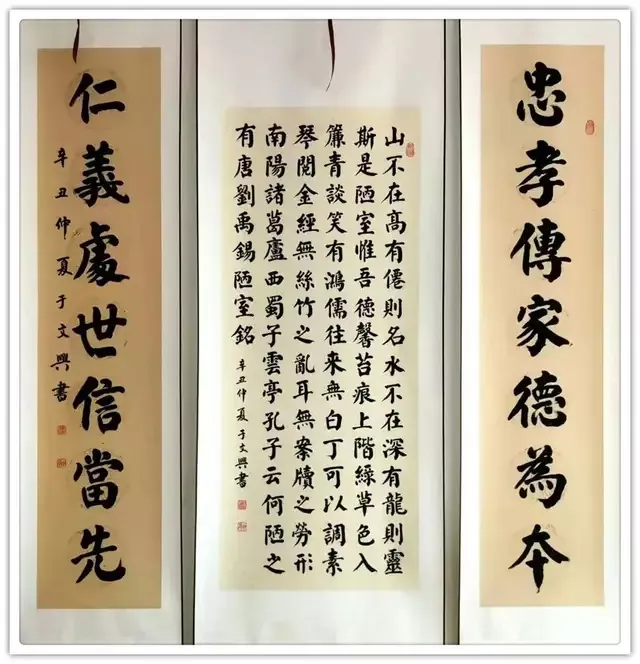 忠孝傳家德為本
山不在高有僊則名水不在深有龍則靈
斯是陋室惟吾德馨苔痕上階綠草色入
簾青談笑有鴻儒往來無白丁可以調素
琴閱金經無絲竹之亂耳無案牘之勞形
南陽諸葛廬西蜀子雲亭孔子云何陋之
有唐劉禹錫陋室銘 辛丑仲夏于文興書
仁義處世信當先
辛丑仲夏于文興書